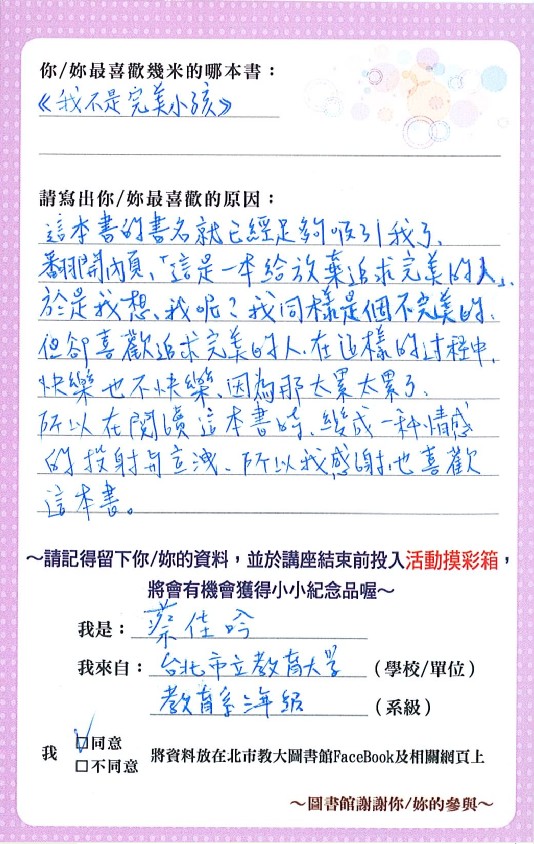 你/妳最喜歡幾米的哪本書：
《我不是完美小孩》
請寫出你/妳最喜歡的原因：
這本書的書名就已經足夠吸引我了、
翻開內頁、「這是一本給放棄追求完美的人」、
於是我想、我呢？我同樣是個不完美的、
但卻喜歡追求完美的人、在這樣的過程中、
快樂也不快樂、因為那太累太累了、
所以在閱讀這本書時、變成一种情感
的投射與宣洩、所以我感謝、也喜歡
這本書。
～請記得留下你/妳的資料，並於講座結束前投入活動摸彩箱，
將會有機會獲得小小紀念品喔～
我是：蔡佳吟
我來自：台北市立教育大學（學校/單位）
教育系三年級（系級）
我 ☑同意
□不同意 將資料放在北市教大圖書館FaceBook及相關網頁上
～圖書館謝謝你/妳的參與～